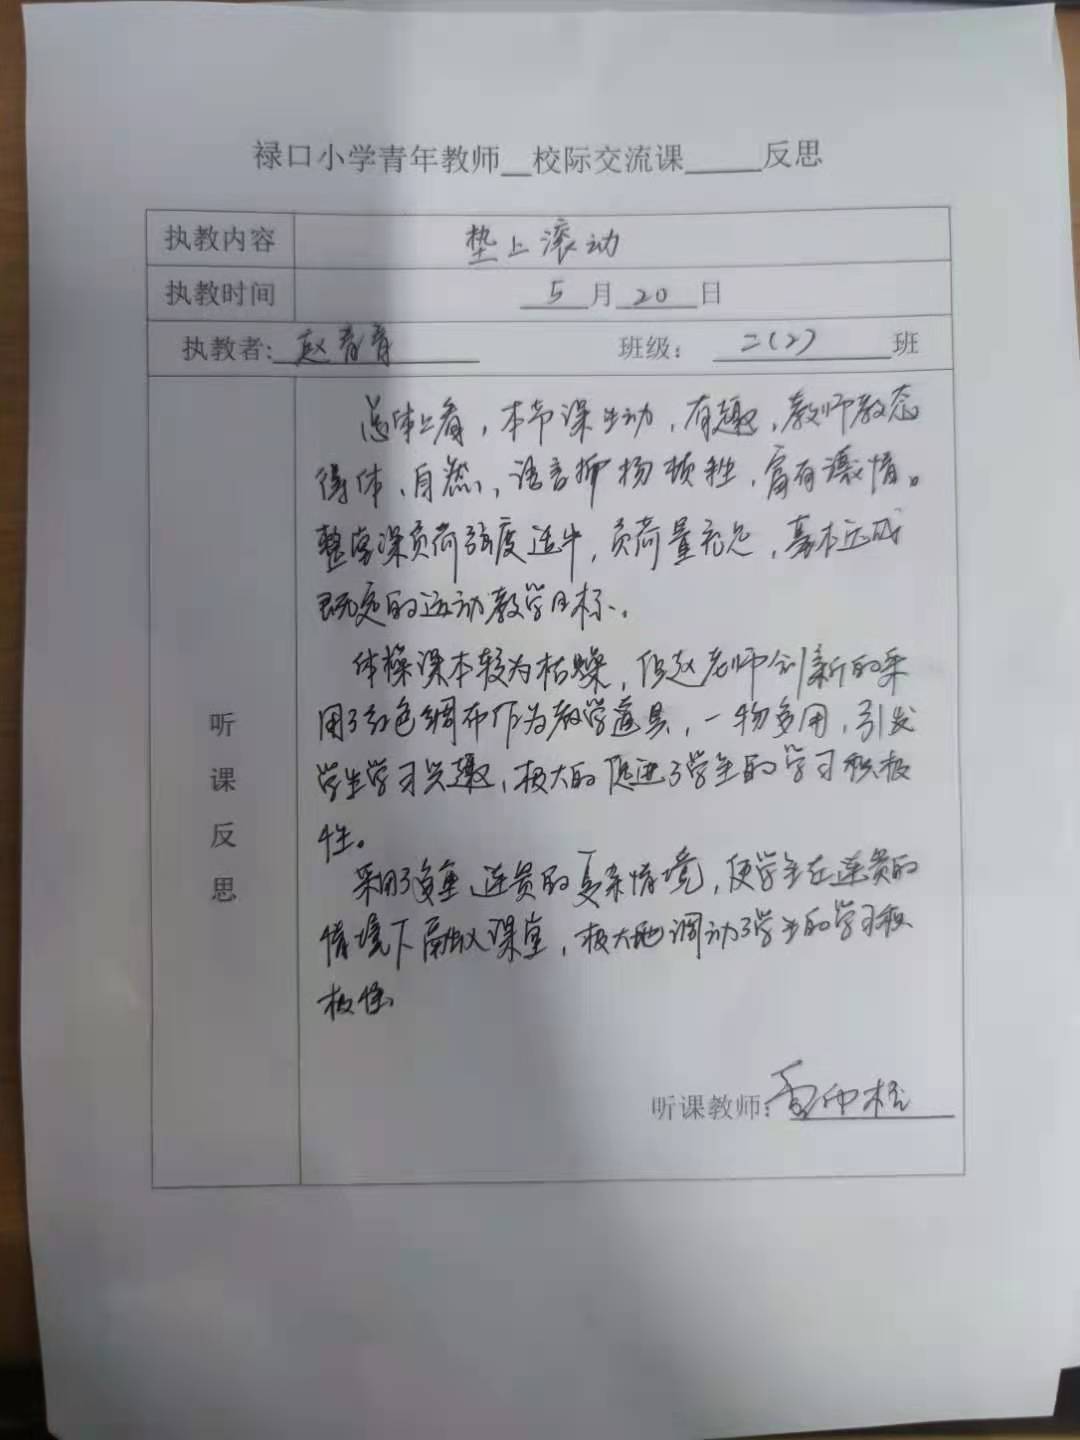 禄口小学青年教师__校际交流课____反思
执教内容 垫上滚动
执教时间 5月20日
执教者: 赵青青 班级: 二(2) 班
听课反思
总体上看，本节课生动，有趣，教师教态
得体、自然，语言抑扬顿挫，富有激情。
整堂课负荷强度适中，负荷量充足，基本达成
既定的运动教学目标。
体操课本较为枯燥，但赵老师创新的采
用了红色绸布作为教学道具，一物多用，引发
学生学习兴趣，极大的促进了学生的学习积极
性。
采用了 连贯的复杂情境，使学生在连贯的
情境下 课堂，极大地调动了学生的学习积
极性
听课教师: